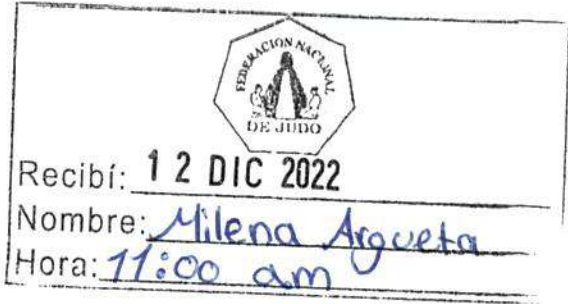 FEDERACION NACIONAL
DE JUDO
Recibí: 12 DIC 2022
Nombre: Milena Argueta
Hora: 11:00 am